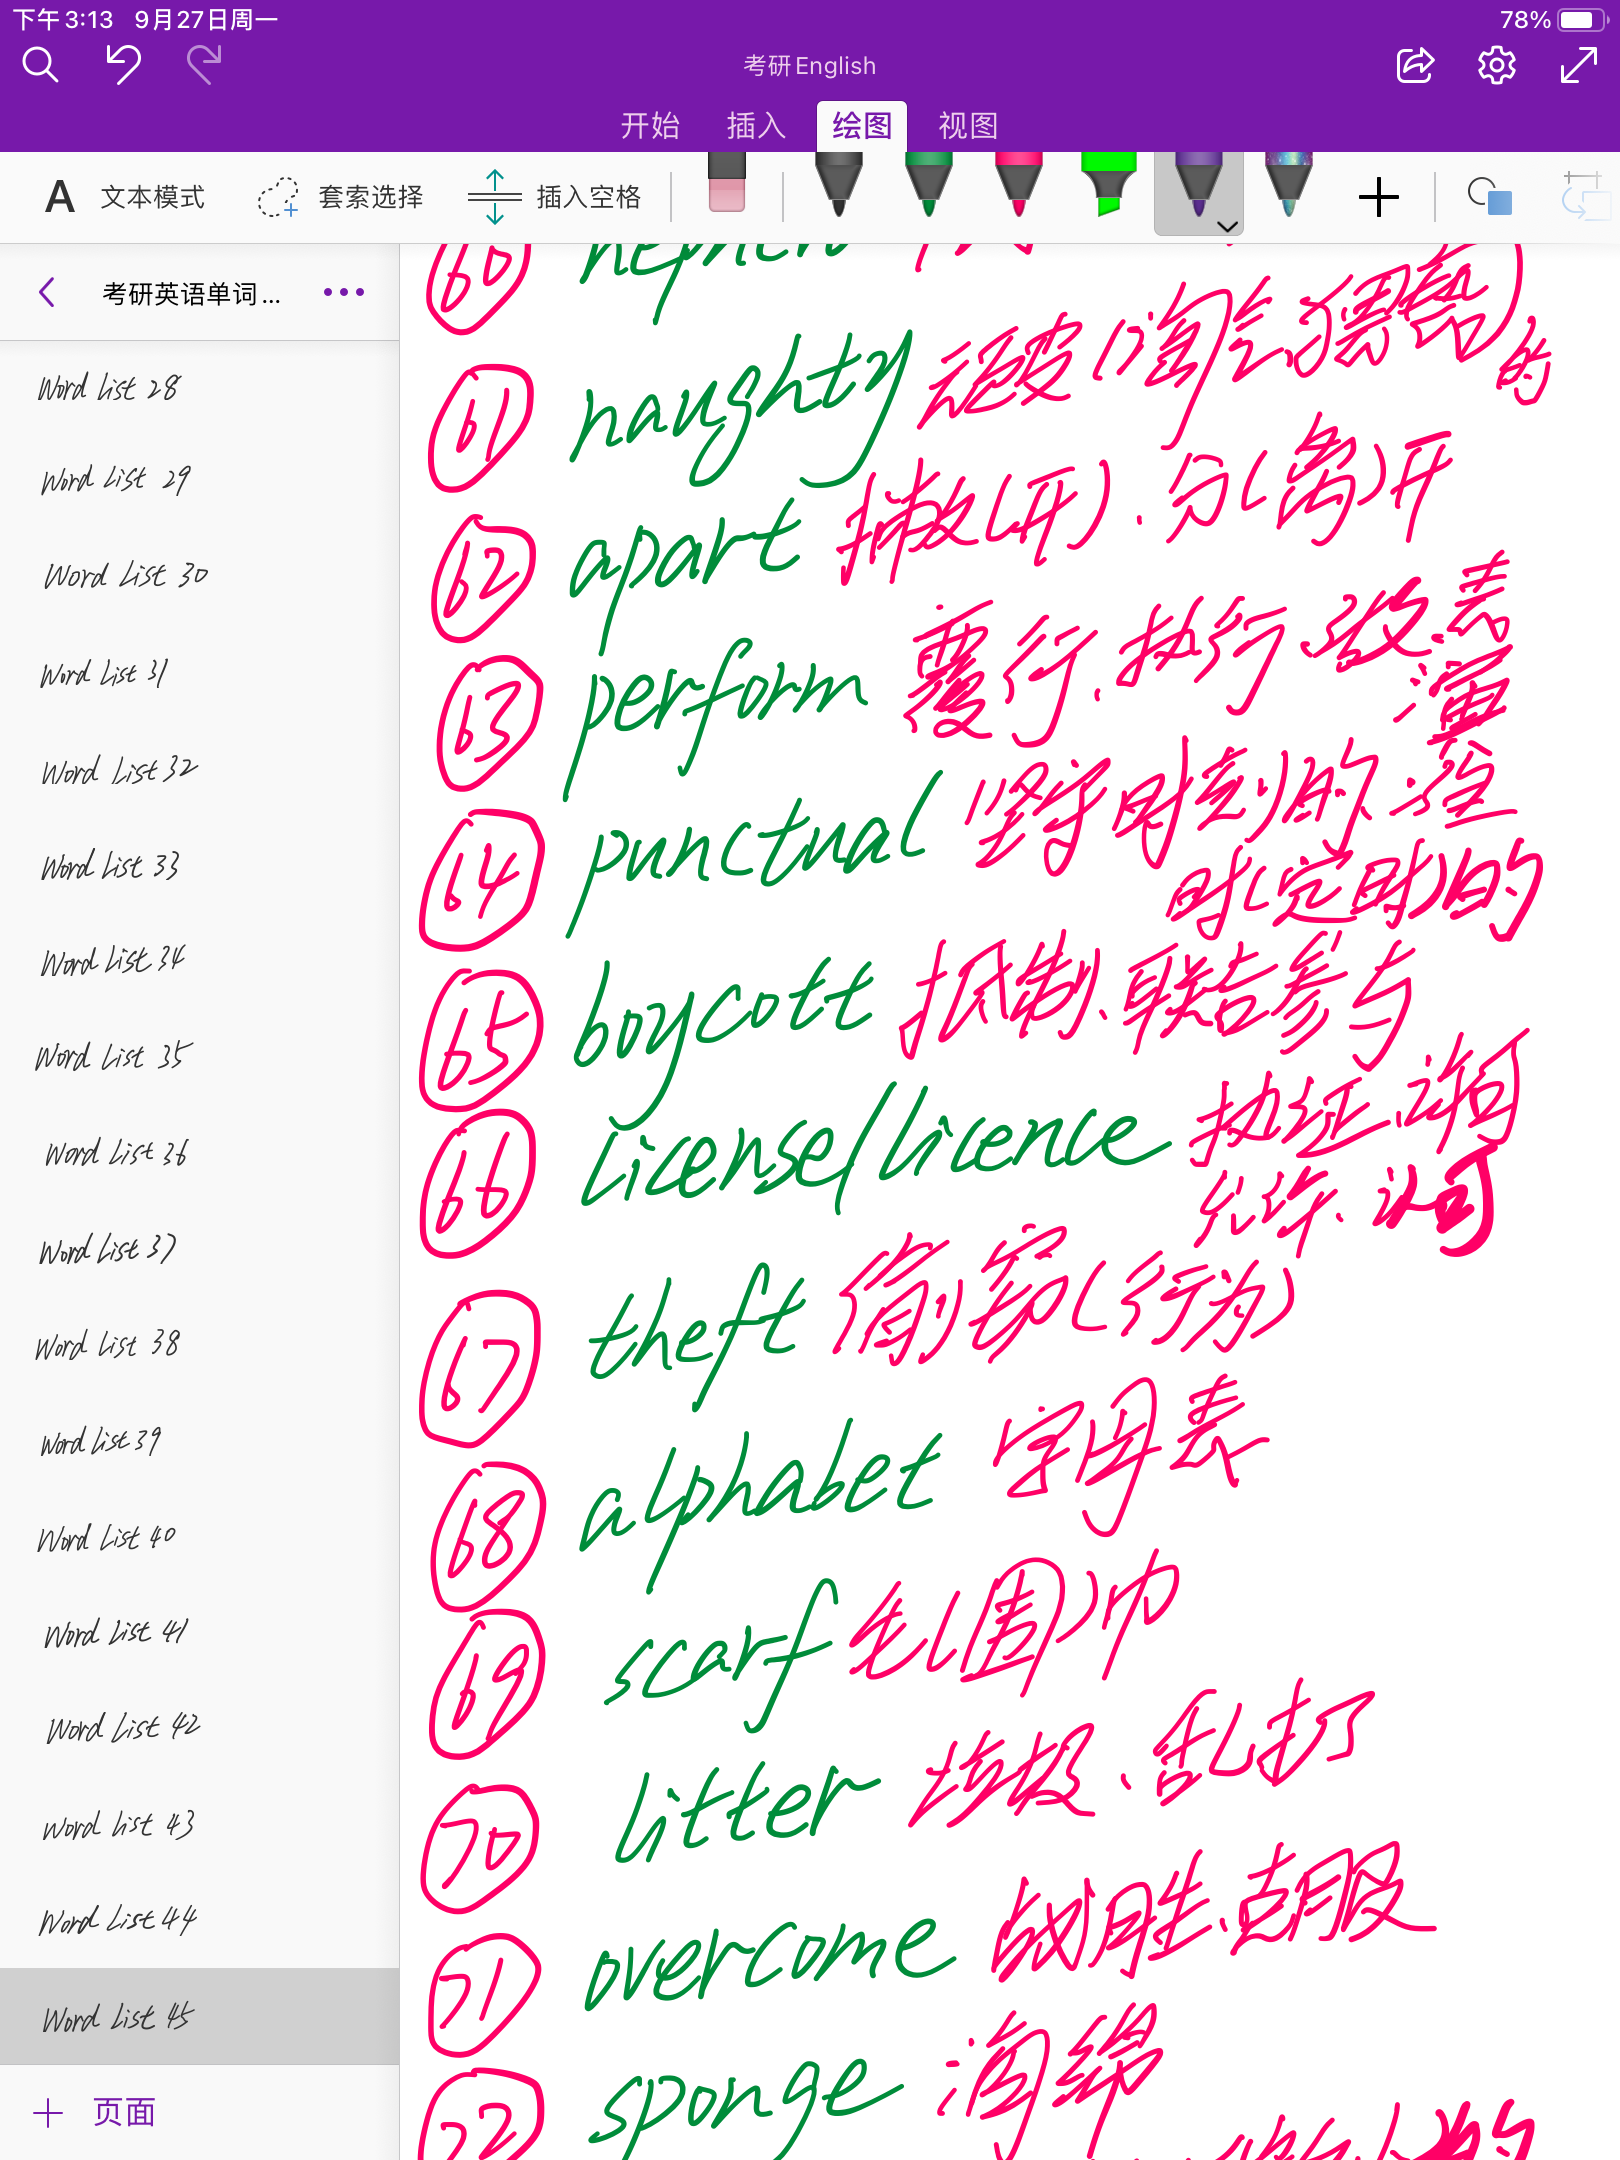 下午3:13 9月27日周一
78%
考研English
开始 插入 绘图 视图
A 文本模式 套索选择 插入空格
考研英语单词...
Word List 28
Word List 29
Word List 30
Word List 31
Word List 32
Word List 33
Word List 34
Word List 35
Word List 36
Word List 37
Word List 38
Word List 39
Word List 40
Word List 41
Word List 42
Word List 43
Word List 44
Word List 45
页面
60
61 naughty 顽皮(淘气、猥亵)的
62 apart 撇(开)、分(离)开
63 perform 履行、执行、表
演
64 punctual 坚守时刻的、准
时(定时)的
65 boycott 抵制、联合参与
66 license/licence 执证、许可
允许、认可
67 theft 偷窃(行为)
68 alphabet 字母表
69 scarf 毛(围)巾
70 litter 垃圾、乱扔
71 overcome 战胜、克服
72 sponge 海绵
的